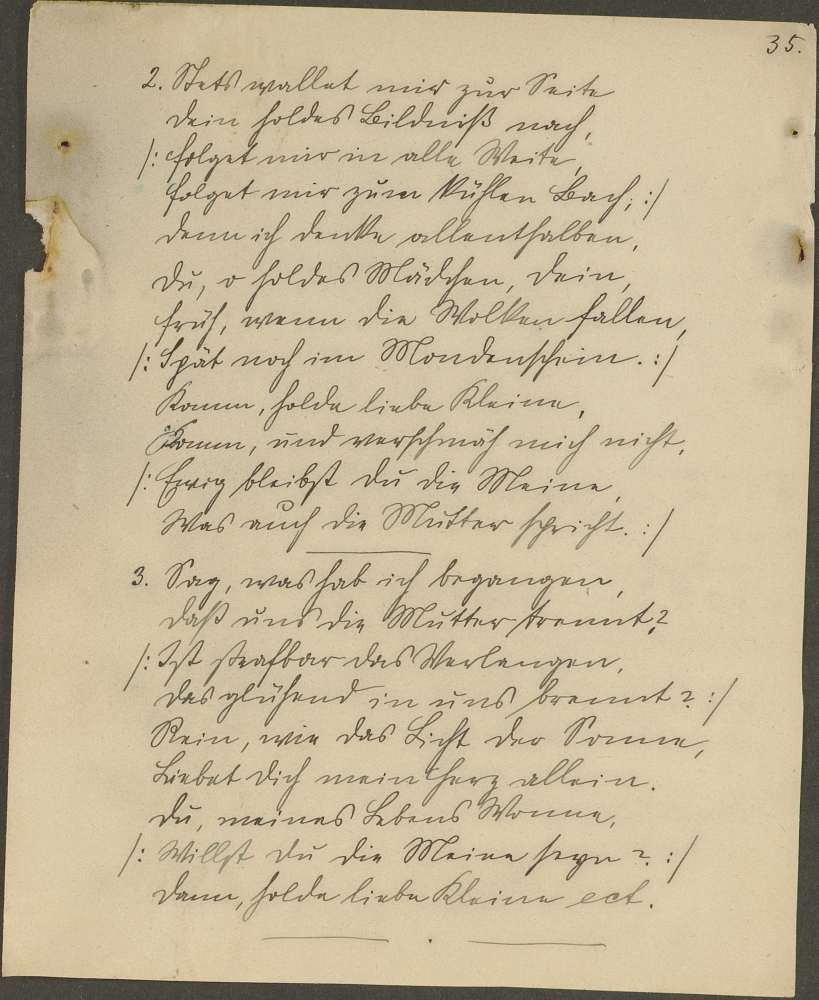 35.
2. Stets wallet mir zur Seite
dein holdes Bildniß nach,
/: folget mir in alle Weite,
folget mir zum kühlen Bach; :/
denn ich denke allenthalben,
du, o holdes Mädchen, dein,
früh, wenn die Wolken fallen,
/: Spät noch im Mondenschein. :/
Komm, holde liebe Kleine,
Komm, und verschmäh mich nicht,
/: Ewig bleibst du die Meine,
Was auch die Mutter spricht. :/
3. Sag, was hab ich begangen,
daß uns die Mutter trennt?
/: Ist strafbar das Verlangen,
das glühend in uns brennt? :/
Rein, wie das Licht der Sonne,
Liebet dich mein Herz allein.
du, meines Lebens Wonne,
/: Willst du die Meine seyn? :/
dann, holde liebe Kleine ect.